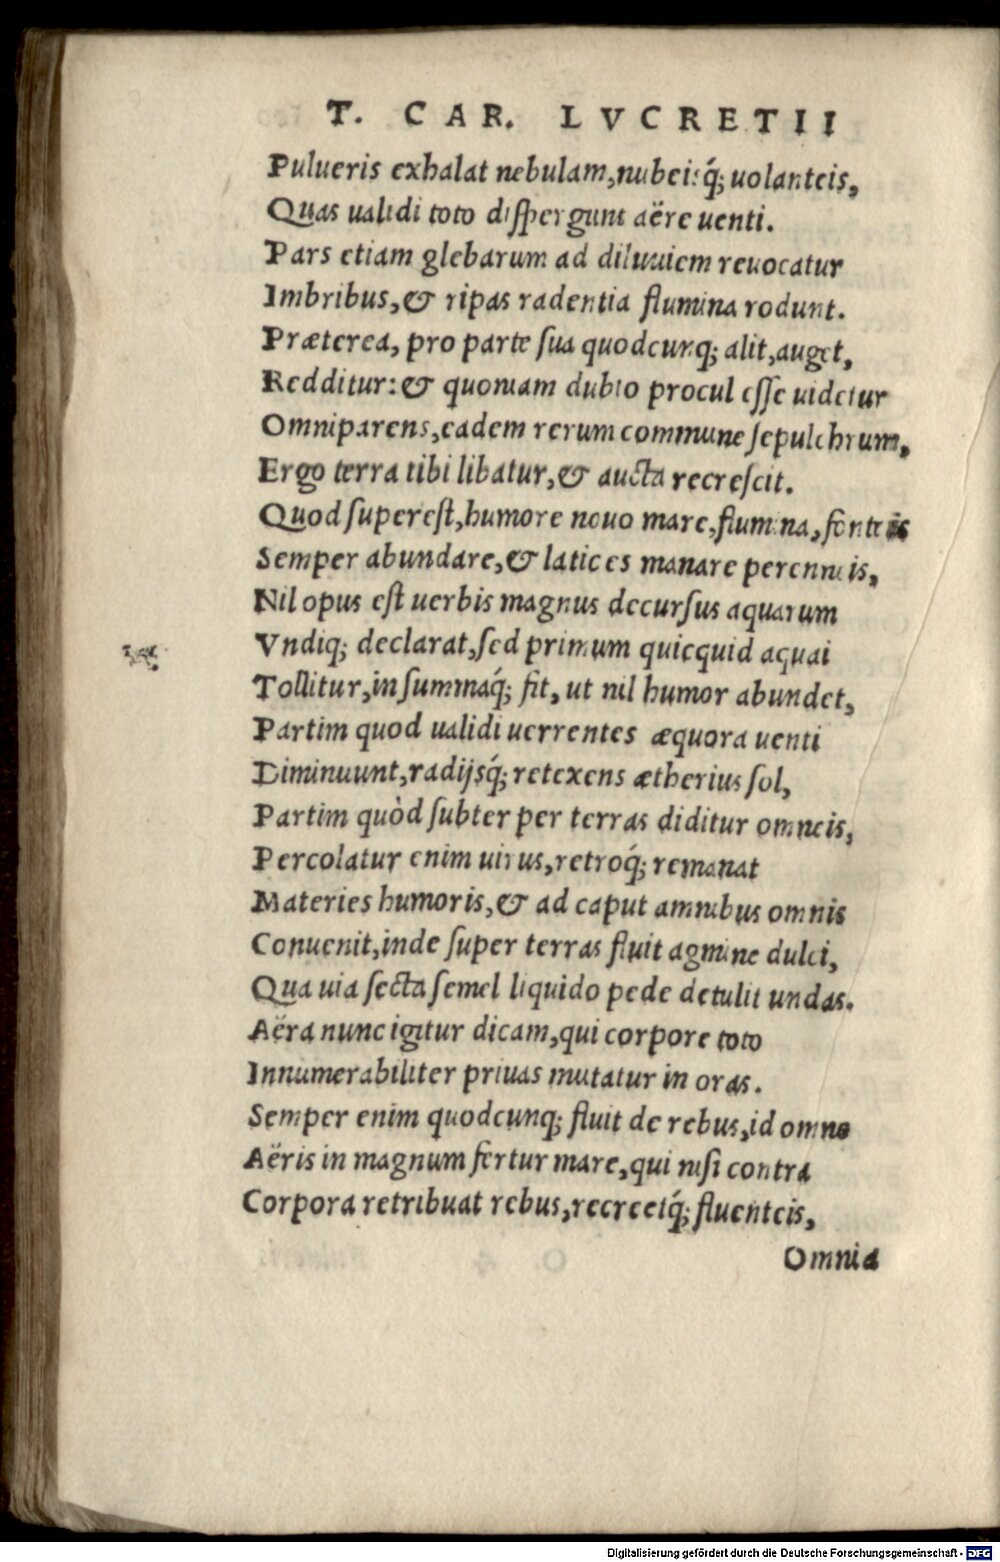 T. CAR. LVCRETII
Pulueris exhalat nebulam,nubeisq́; uolanteis,
Quas ualidi toto diſpergunt aëre uenti.
Pars etiam glebarum ad diluuiem reuocatur
Imbribus,& ripas radentia flumina rodunt.
Præterea, pro parte ſua quodcunq; alit,auget,
Redditur:& quoniam dubio procul eſſe uidetur
Omniparens,eadem rerum commune ſepulchrum,
Ergo terra tibi libatur,& aucta recreſcit.
Quod ſupereſt,humore nouo mare,flumina,fonteis
Semper abundare,& latices manare perenneis,
Nil opus eſt uerbis magnus decurſus aquarum
Vndiq; declarat,ſed primum quicquid aquai
Tollitur,in ſummaq́; fit, ut nil humor abundet,
Partim quod ualidi uerrentes æquora uenti
Diminuunt,radijsq́; retexens ætherius ſol,
Partim quòd ſubter per terras diditur omneis,
Percolatur enim uirus,retroq́; remanat
Materies humoris,& ad caput amnibus omnis
Conuenit,inde ſuper terras fluit agmine dulci,
Qua uia ſecta ſemel liquido pede detulit undas.
Aëra nunc igitur dicam,qui corpore toto
Innumerabiliter priuas mutatur in oras.
Semper enim quodcunq; fluit de rebus,id omne
Aëris in magnum fertur mare,qui niſi contra
Corpora retribuat rebus,recreetq́; fluenteis,
Omnia
Digitalisierung gefördert durch die Deutsche Forschungsgemeinschaft - DFG